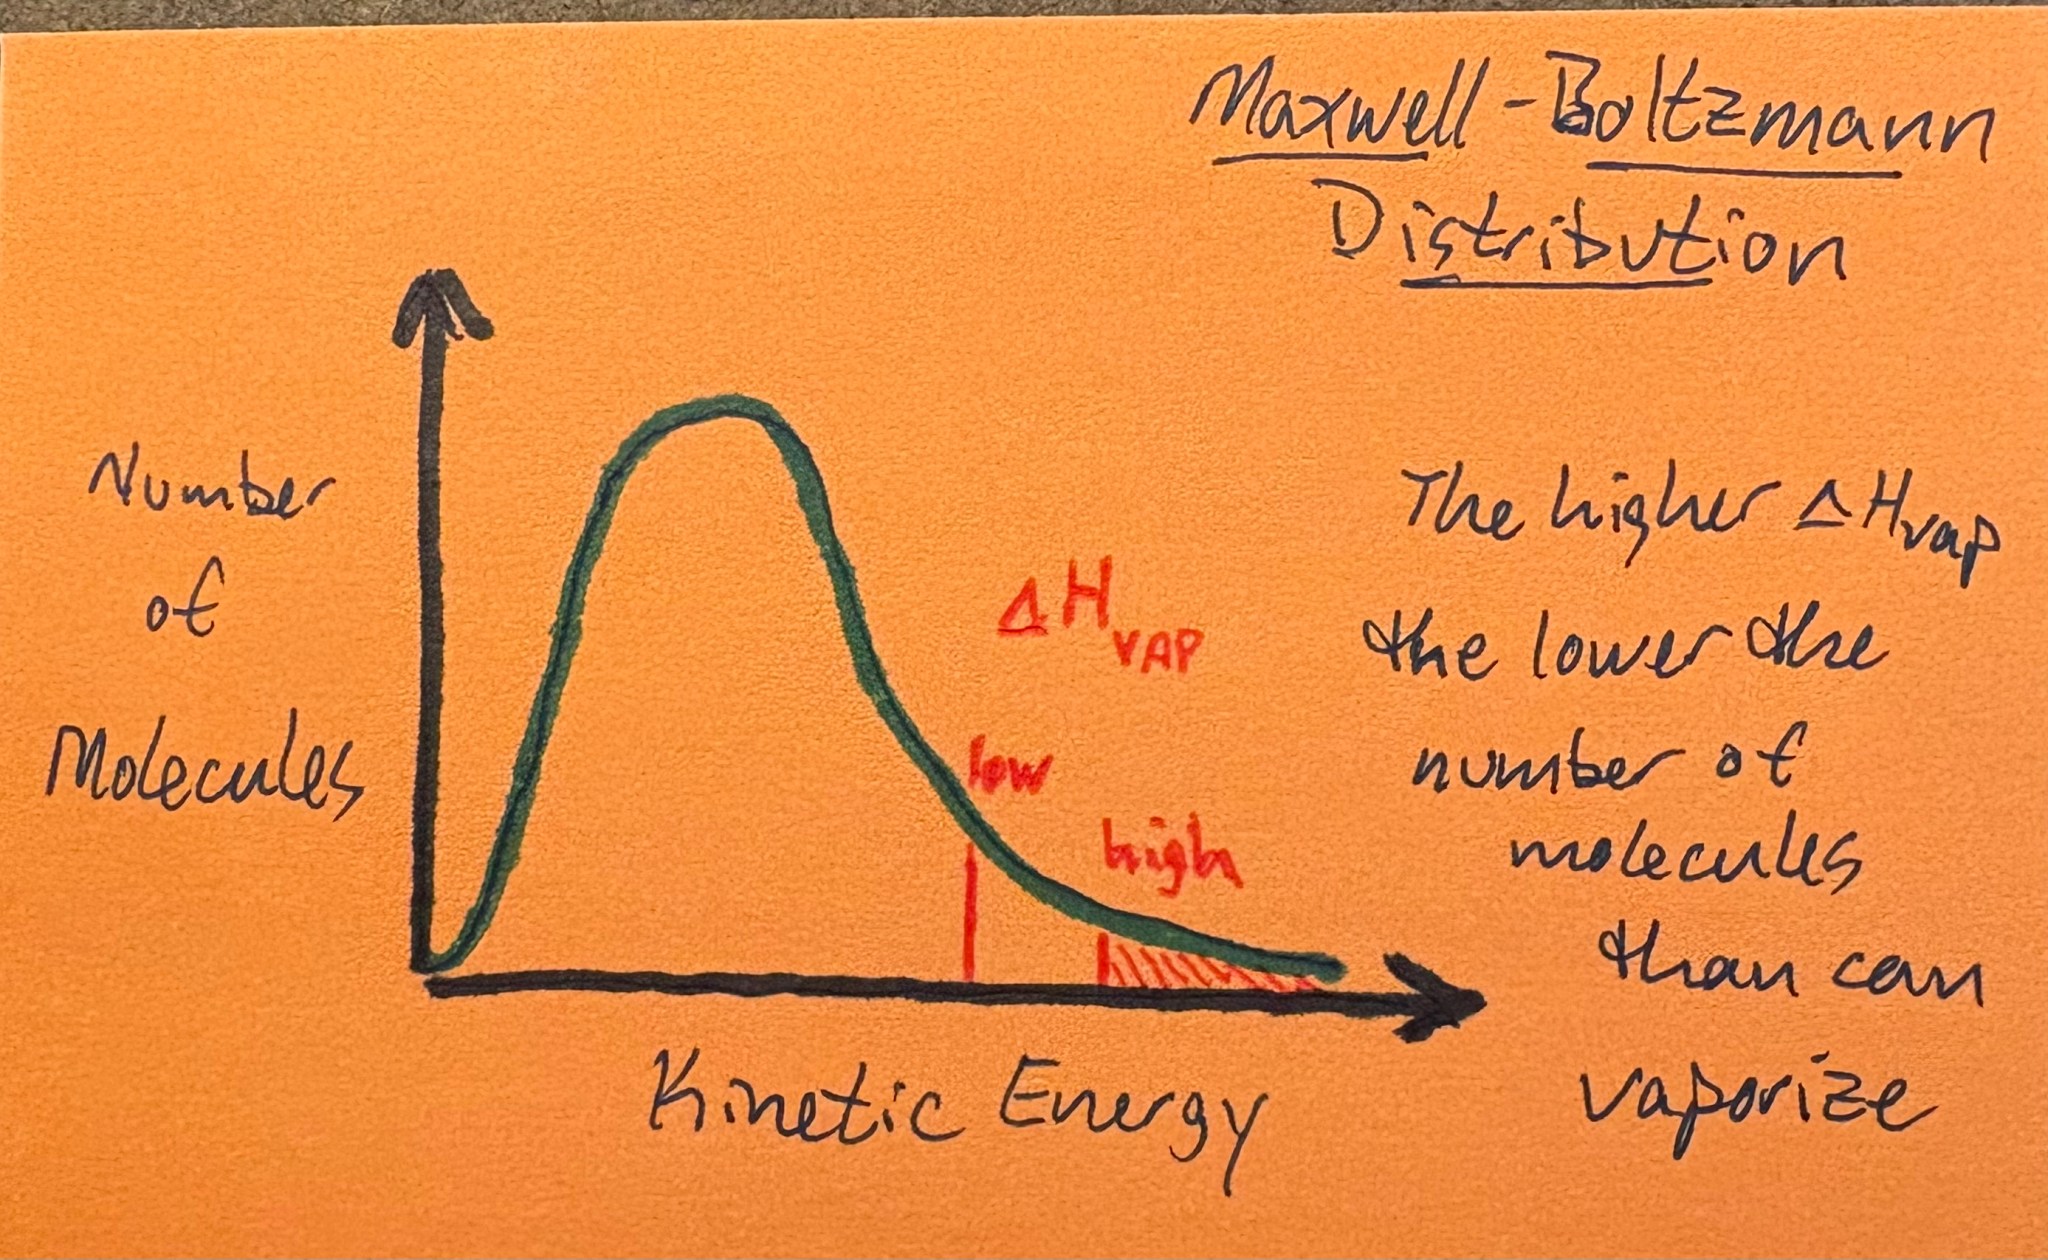 Maxwell-Boltzmann
Distribution
Number
of
Molecules
ΔHVAP
low
high
Kinetic Energy
The higher ΔHvap
the lower the
number of
molecules
than can
vaporize